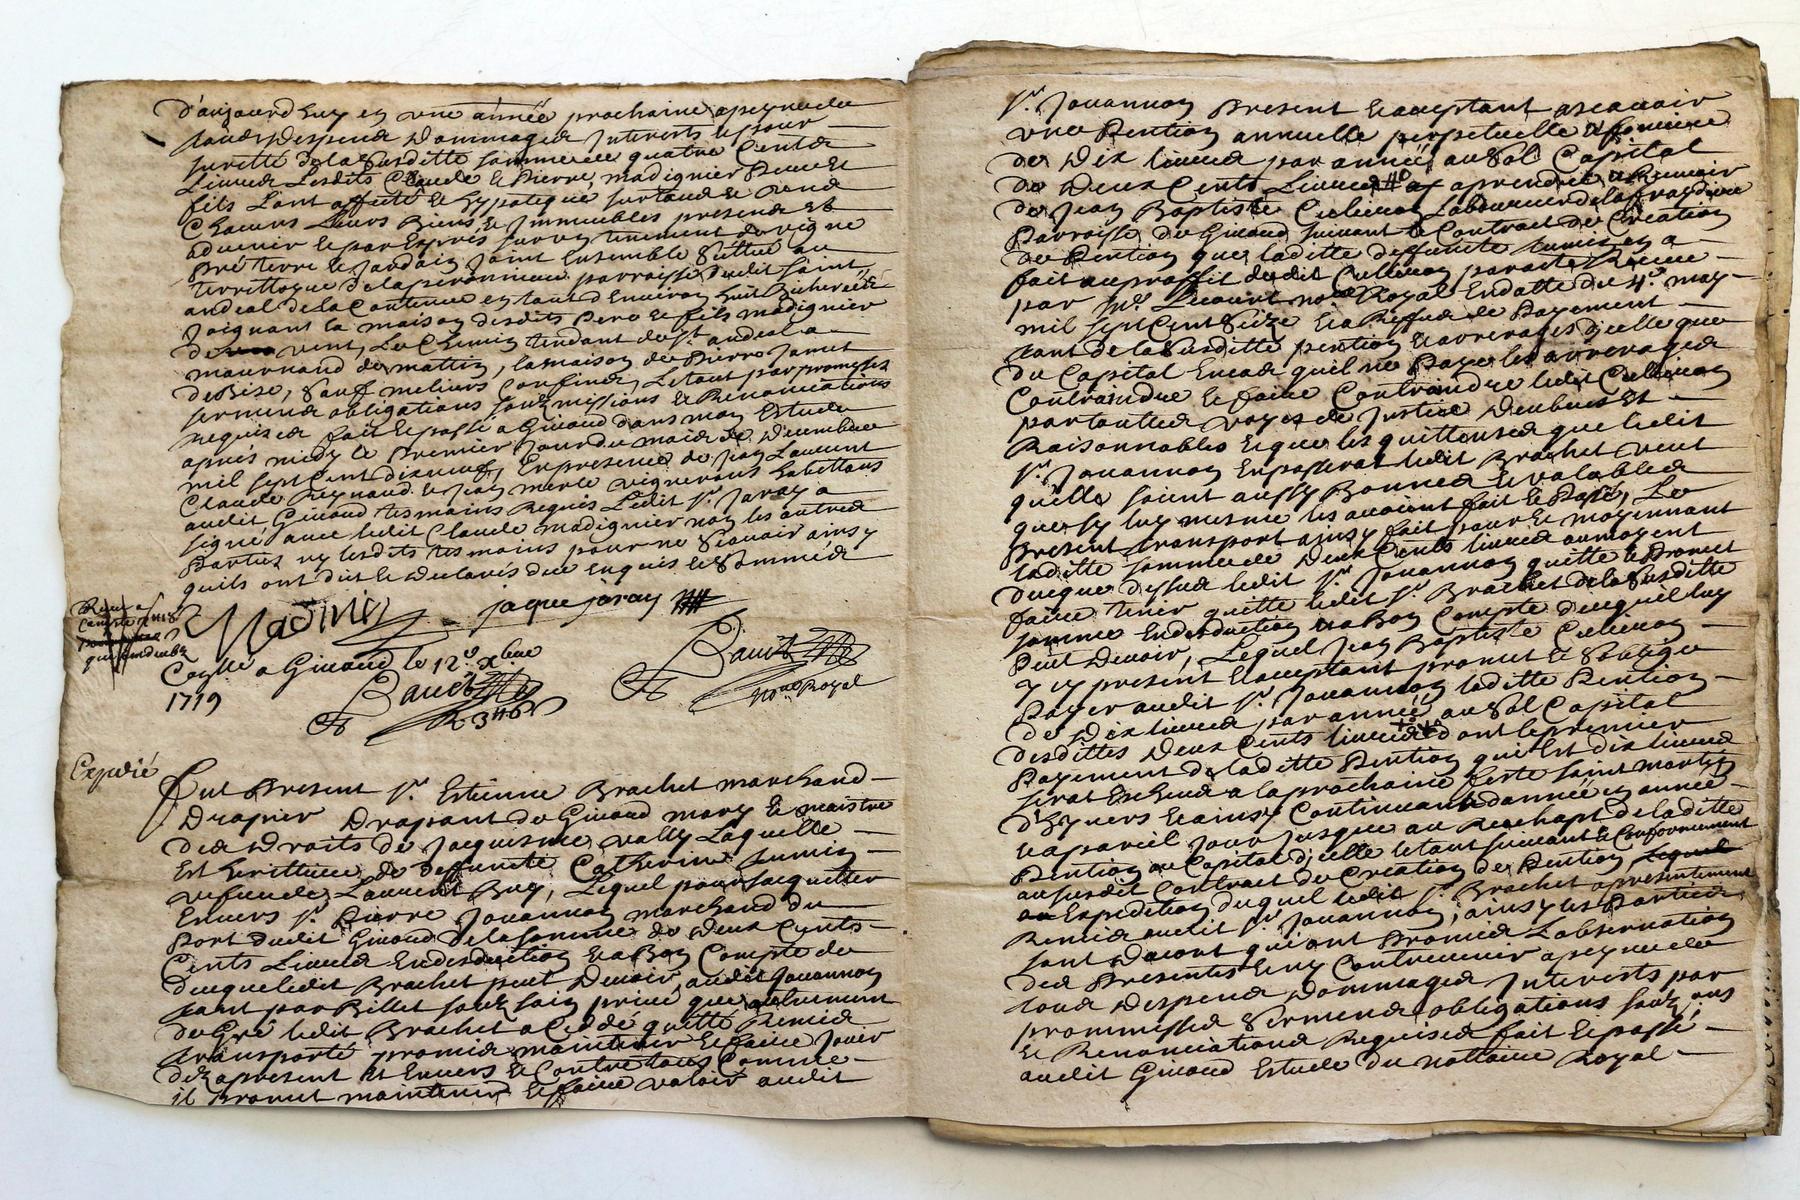 d'aujourd huy en une année prochaine apeyne de
tous despens dommages Interests et pour
surette de la Susditte somme de quatre Cents
Livres Lesdits Claude et Pierre, madignier Pere et
fils Lont affecté et hypotequé surtous et uns
Chacuns Leurs Biens, et Immeubles presens et
advenir et par Exprés sur un tenement de vigne
Pré terre et Jardain Joint Ensemble Sittué au
territtoire de laperonniere parroisse dudit Saint
andeal de la Contenue en tout d'Environ huit Bicherées
Joignant la maison desdits Pere et fils madignier
de vent, Le Chemin tendant de St. andeal a
mournand de mattin, la maison de Pierre Jamet
de Bise, Sauf meilieurs Confins, Letout par promesses
serments obligations soubmissions et Renonciations
requises fait et passé a Givord dans mon Estude
aprés midy le Premier Jour du mois de Decembre
mil sept cent dix neuf, En presence de Jean Laurent
Claude Reynaud et Jean merle vignerons habittans
audit Givord tesmoins Requis Ledit Sr. Jaray a
signé avec ledit Claude madignier non les autres
Parties ny lesdits tesmoins pour ne Scavoir ainsy
quils ont dit et declarés de ce enquis et Sommés
Madinier jaque jaray
Conllé a Givord le 12e. Xbre
1719
Nore Royal
Expedié
Fut Present Sr. Estienne Brachet marchand
Drapier Drapant de Givord mary et maistre
des Droits de Jacquesme vally Laquelle
Est herittiere de deffunte Catherine
vefve de Laurent Buy, Lequel pour sacquitter
Envers Sr. Pierre Jouannon marchand du
Port dudit Givord de la somme de deux Cents
Cents Livres En desduction et a Bon Compte de
ce que ledit Brachet peut Devoir audit Jouannon
tant par Billet soubs sein privé que autrement
de Gré ledit Brachet a Ceddé quitté Remis
transporté promis maintenir et faire Jouir
dez apresent et Envers et Contre tous Comme
il promet maintenir et faire valoir audit
Sr. Jouannon Present et acceptant ascavoir
une Pention annuelle perpetuelle et fonciere
de Dix livres par année au Sol Capital
de Deux Cents Livres aprendre et Recevoir
de Jean Baptiste Laboureur de
Parroisse de Givord suivant le Contract de Création
de Pention que laditte deffunte en a
fait au proffit dudit par acte Receu
par Me. nore Royal En datte du 4e. may
mil sept Cent Seize et a Reffus de Payement
tant de la Susditte pention et arrerages d'icelle que
du Capital En cas quil ne Paye les arrerages
Contraindre et faire Contraindre ledit
par toutes voyes de Justice Deubues et
Raisonnables et que les quittances que ledit
Sr. Jouannon En passerat ledit Brachet veut
quelle soient aussy Bonnes et valables
que sy luy mesme les avoient fait et Passé, Le
Present transport ainsy fait pour et moyennant
laditte somme de Deux Cents livres au moyent
de ce que dessus ledit Sr. Jouannon quitte et Promet
faire tenir quitte ledit Sr. Brachet de la Susditte
somme En desduction et a Bon Compte de ce quil luy
Peut Devoir, Lequel Jean Baptiste
y cy present et acceptant promet et Soblige
Payer audit Sr. Jouannon laditte Pention
de Dix livres par année au Sol Capital
desdittes Deux Cents livres dont le premier
Payement de laditte Pention qui Est dix livres
serat Escheu a la prochaine feste saint martin
d'hyvers et ainsy Continuant dannée en année
et a pareil Jour Jusque au Reachapt de laditte
Pention au Capital d'icelle le tout suivant et Conformement
au susdit Contract de Creation de Pention
Expedition duquel ledit Sr. Brachet a presentement
Remis audit Sr. Jouannon, ainsy les Parties
sont d'acort qui ont Promis L'observation
des Presentes et ny Contrevenir apeyne de
tous despens dommages Interests par
prommesses Serments obligations
et Renonciations Requises fait et passé
audit Givord Estude du nottaire Royal